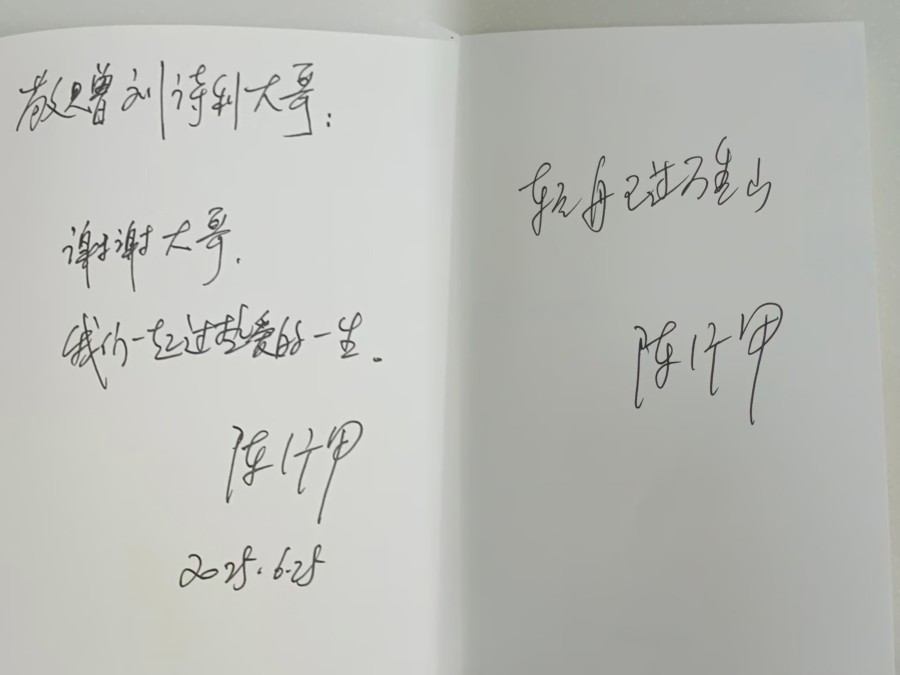 敬赠刘诗利大哥:
谢谢大哥.
我们一起过热爱的一生.
陈行甲
2025.6.25
轻舟已过万重山
陈行甲